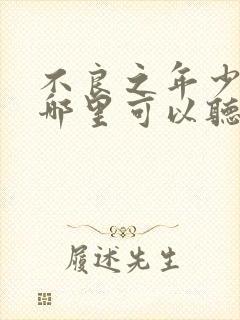 不良之年少
哪里可以聽
履述先生